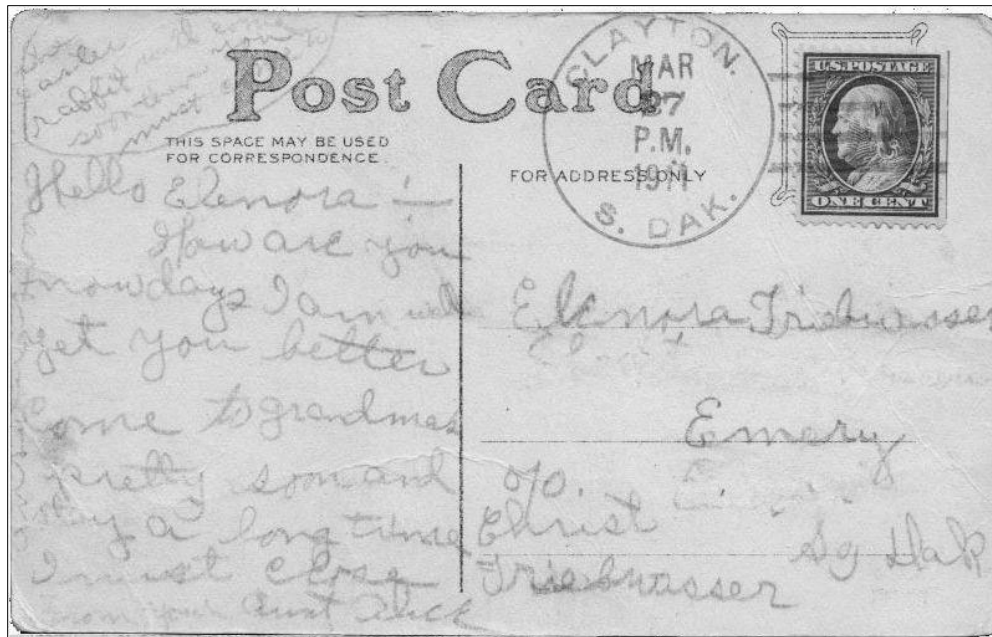 rabbit will come
soon
must
Post Card
THIS SPACE MAY BE USED
FOR CORRESPONDENCE.
FOR ADDRESS ONLY
CLAYTON.
MAR
27
P.M.
1911
S. DAK.
U.S. POSTAGE
ONE CENT
Hello Elenora! —
How are you
nowdays I am well
get you better
Come to grandmas
pretty soon and
stay a long time
I must close
from your Aunt
Elenora Triebwasser
Emery
So Dak
c/o.
Christ
Triebwasser